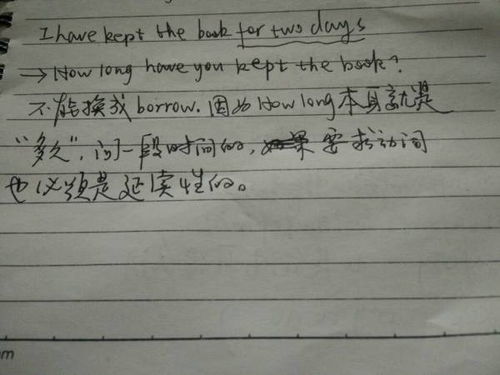 I have kept the book for two days
→ How long have you kept the book?
不能换成borrow.因为How long本身就是
"多久",问一段时间的,要求动词
也必须是延续性的。
m